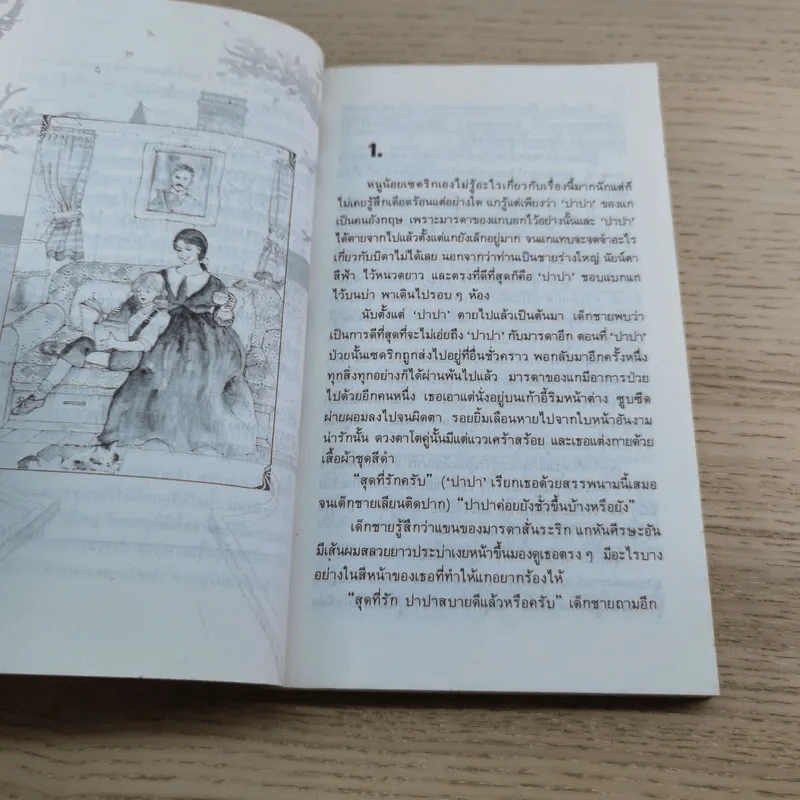 1.
หนูน้อยเซดริกเองไม่รู้อะไรเกี่ยวกับเรื่องนี้มากนักแต่ก็
ไม่เคยรู้สึกเดือดร้อนแต่อย่างใด แกรู้แต่เพียงว่า ‘ปาปา’ ของแก
เป็นคนอังกฤษ เพราะมารดาของแกบอกไว้อย่างนั้นและ ‘ปาปา’
ได้ตายจากไปแล้วตั้งแต่แกยังเล็กอยู่มาก จนแกแทบจะจดจำอะไร
เกี่ยวกับบิดาไม่ได้เลย นอกจากว่าท่านเป็นชายร่างใหญ่ นัยน์ตา
สีฟ้า ไว้หนวดยาว และตรงที่ดีที่สุดก็คือ ‘ปาปา’ ชอบแบกแก
ไว้บนบ่า พาเดินไปรอบ ๆ ห้อง
นับตั้งแต่ ‘ปาปา’ ตายไปแล้วเป็นต้นมา เด็กชายพบว่า
เป็นการดีที่สุดที่จะไม่เอ่ยถึง ‘ปาปา’ กับมารดาอีก ตอนที่ ‘ปาปา’
ป่วยนั้นเซดริกถูกส่งไปอยู่ที่อื่นชั่วคราว พอกลับมาอีกครั้งหนึ่ง
ทุกสิ่งทุกอย่างก็ได้ผ่านพ้นไปแล้ว มารดาของแกมีอาการป่วย
ไปด้วยอีกคนหนึ่ง เธอเอาแต่นั่งอยู่บนเก้าอี้ริมหน้าต่าง ซูบซีด
ผ่ายผอมลงไปจนผิดตา รอยยิ้มเลือนหายไปจากใบหน้าอันงาม
น่ารักนั้น ดวงตาโตคู่นั้นมีแต่แววเศร้าสร้อย และเธอแต่งกายด้วย
เสื้อผ้าชุดสีดำ
“สุดที่รักครับ” (‘ปาปา’ เรียกเธอด้วยสรรพนามนี้เสมอ
จนเด็กชายเลียนติดปาก) “ปาปาค่อยยังชั่วขึ้นบ้างหรือยัง”
เด็กชายรู้สึกว่าแขนของมารดาสั่นระริก แกหันศีรษะอัน
มีเส้นผมสลวยยาวประบ่าเงยหน้าขึ้นมองดูเธอตรง ๆ มีอะไรบาง
อย่างในสีหน้าของเธอที่ทำให้แกอยากร้องไห้
“สุดที่รัก ปาปาสบายดีแล้วหรือครับ” เด็กชายถามอีก